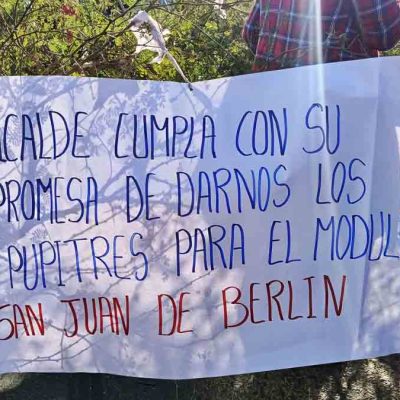 CALDE CUMPLA CON SU
PROMESA DE DARNOS LOS
PUPITRES PARA EL MODUL
SAN JUAN DE BERLIN